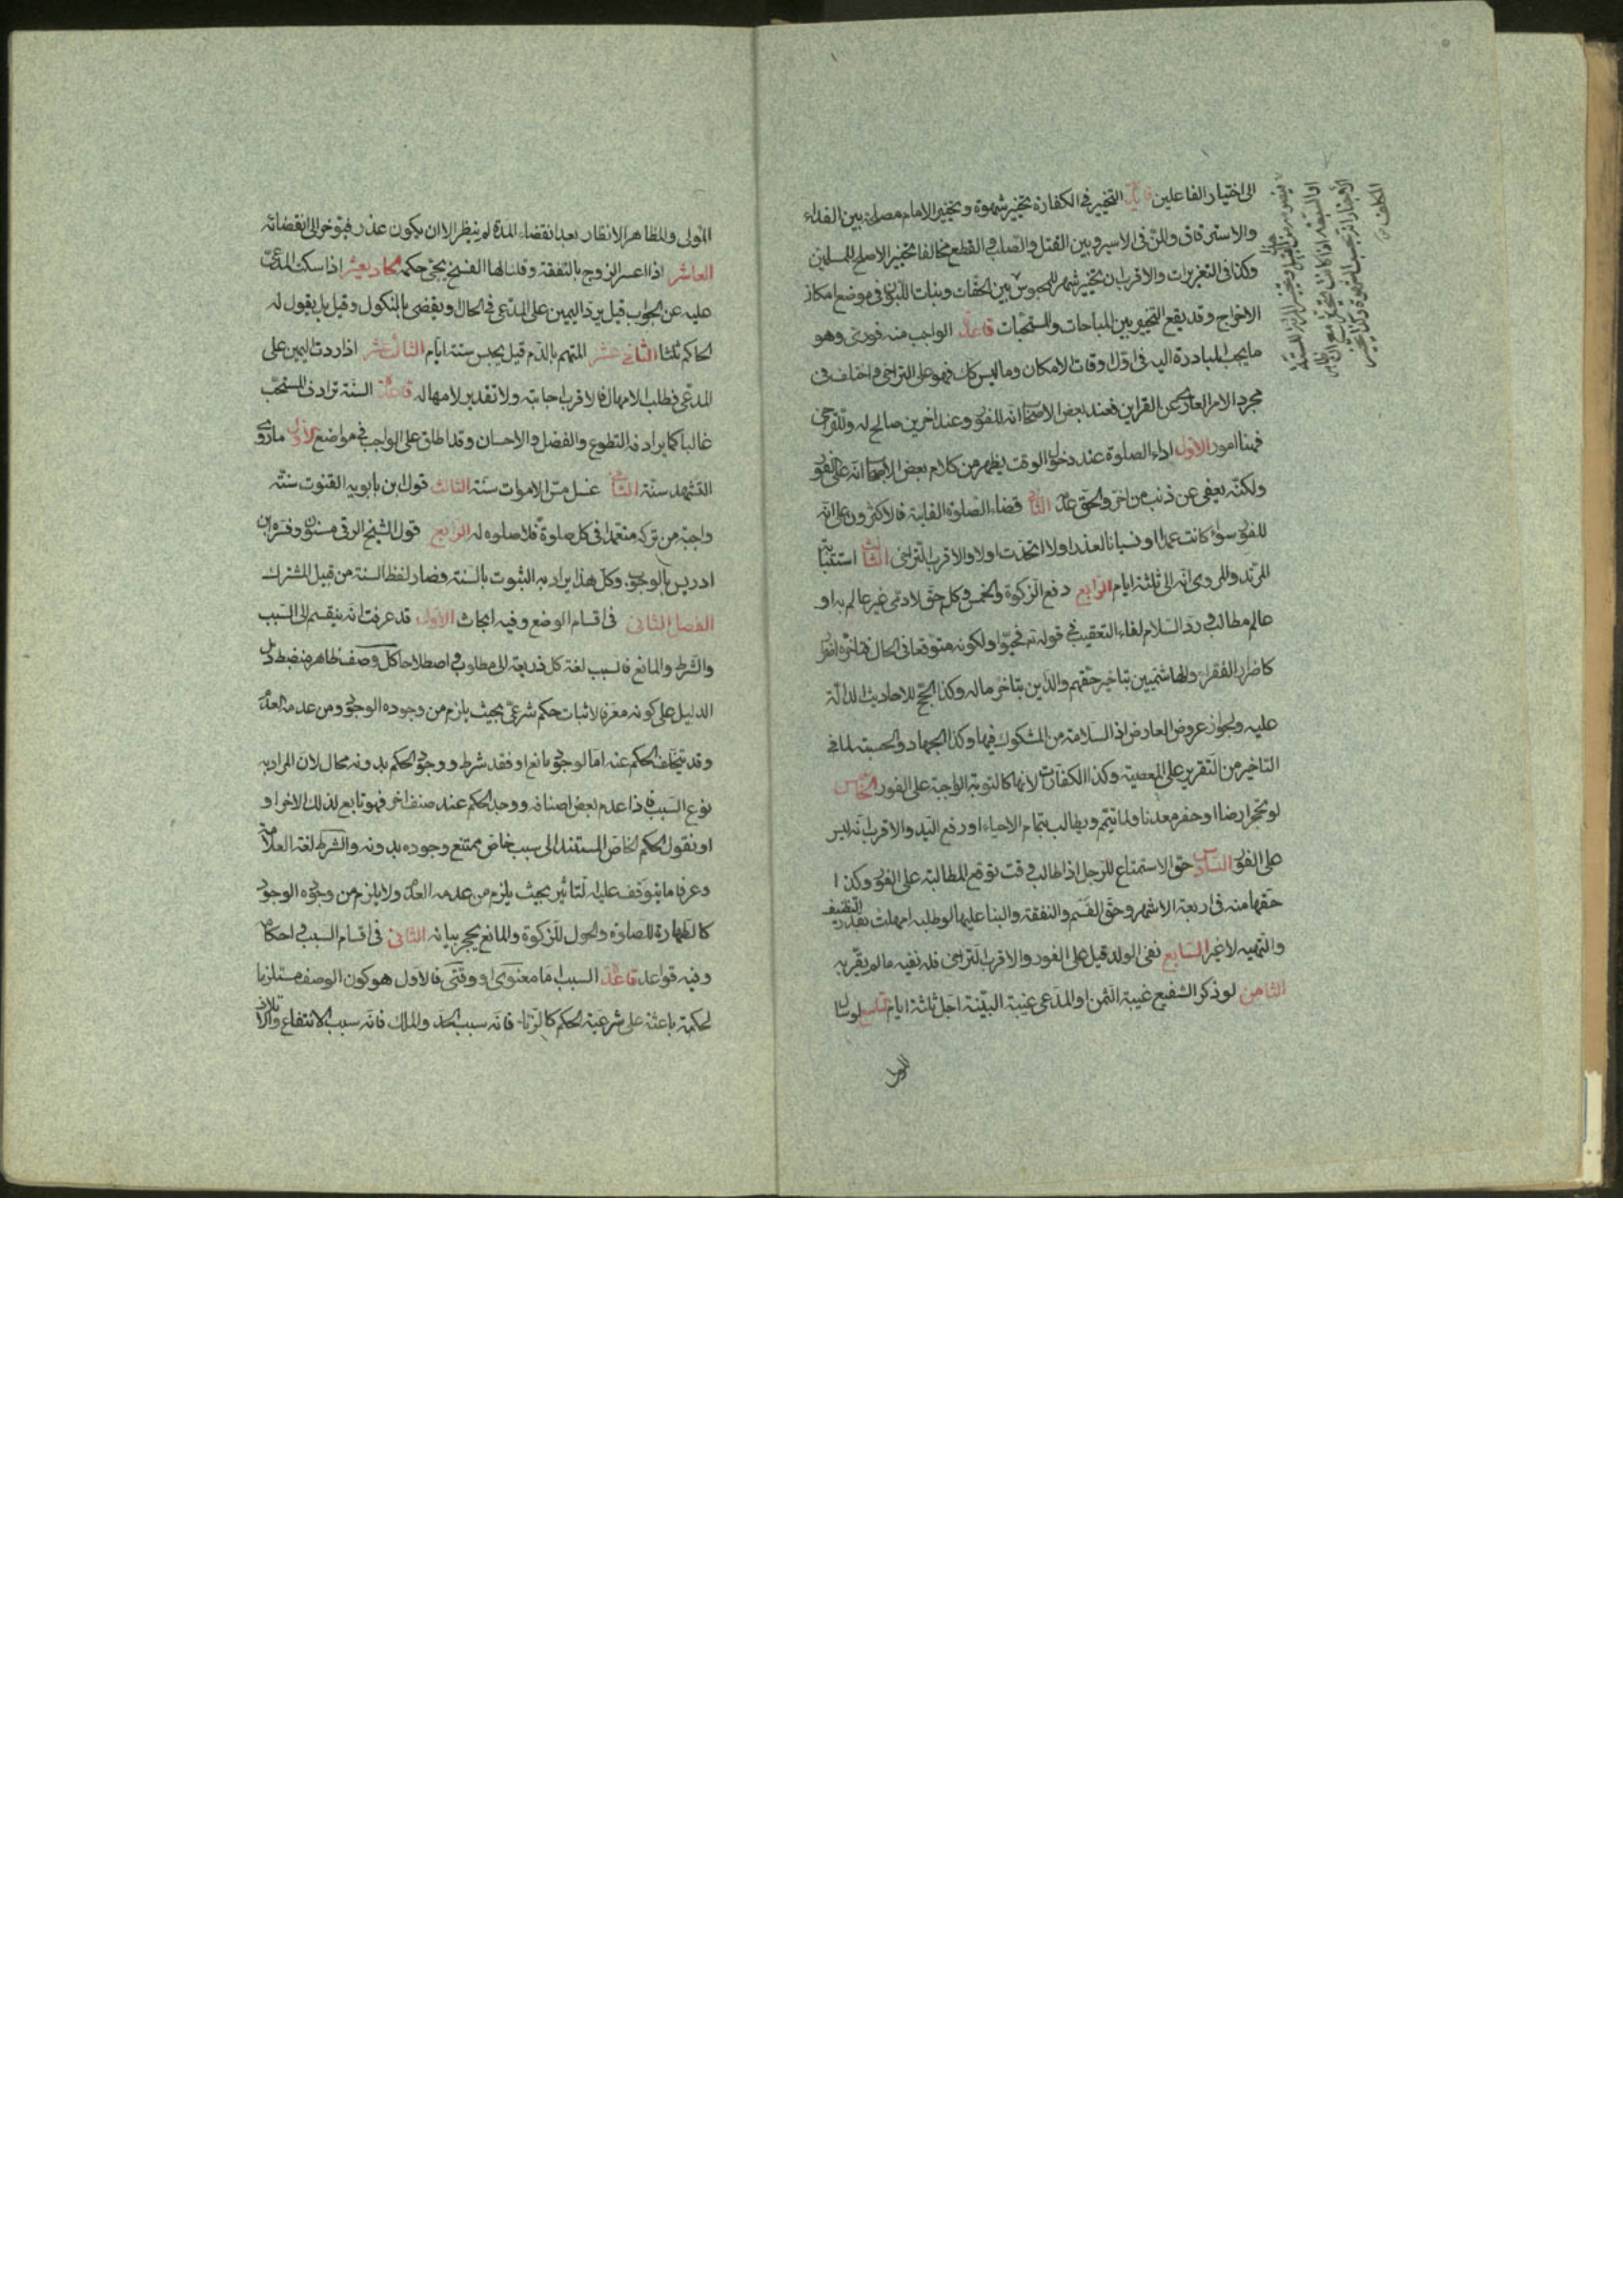 الى اختيار الفاعلين فائدة التخيير فى الكفارة تخيير شهوة وتخيير الامام مصلحة بين الفداء
والاسترقاق والمن فى الاسير وبين القتل والصلب والقطع مخالفا تخيير الاصلح للمسلمين
وكذا فى التعزيرات والاقرب ان تخيير بين الحقاق وبنات اللبون فى موضع امكان
الاخراج وقد يقع التخيير بين المباحات والمستحبات قاعدة الواجب منه فورى وهو
ما يجب المبادرة اليه فى اول اوقات الامكان وما ليس كك فهو على التراخى واختلف فى
مجرد الامر العارى عن القراين فعند بعض الاصحاب انه للفور وعند اخرين صالح له وللتراخى
فهنا امور الاول اداء الصلوة عند دخول الوقت يظهر من كلام بعض الاصحاب انه على الفور
ولكنه يعفى عن ذنب من اخر والحق عدمه الثانى قضاء الصلوة الفايتة فالاكثرون على انه
للفور سواء كانت عمدا او نسيانا لعذر اولا اتحدت اولا والاقرب التراخى الثالث استتابة
المرتد والمروى انه الى ثلثة ايام الرابع دفع الزكوة والخمس وكل حق لادمى غير عالم به او
عالم مطالب ورد السلام لفاء التعقيب فى قوله تع فحيوا ولكونه متوقعا فى الحال فتاخره اضرار
كاضرار الفقراء والهاشميين بتاخير حقهم والدين بتاخر ماله وكذا الحج للاحاديث الدالة
عليه ولجواز عروض العارض اذ السلامة من المشكوك فيها وكذا الجهاد والحسبة لما فى
التاخير من التقرير على المعصية وكذا الكفارات لانها كالتوبة الواجبة على الفور الخامس
لو تحجر ارضا او حفر معدنا ولما يتم ويطالب بتمام الاحياء او رفع اليد والاقرب انه ليس
على الفور السادس حق الاستمتاع للرجل اذا طالب وقت توقع المطالبة على الفور وكذا
حقها منه فى اربعة الاشهر وحق القسم والنفقة والبنا عليها لو طلبه امهلت بقدر التنظيف
والتهيه لا غير السابع نفى الولد قيل على الفور والاقرب التراخى فله نفيه ما لم يقر به
الثامن لو ذكر الشفيع غيبة الثمن او المدعى غيبة البينة اجل ثلثة ايام التاسع لو سال
المولى والمظاهر الانظار بعد انقضاء المدة لم ينظر الا ان يكون عذر فيؤخر الى انقضائه
العاشر اذا اعسر الزوج بالنفقة وقلنا لها الفسخ يجئ حكمه الحاديعشر اذا سكت المدعى
عليه عن الجواب قيل يرد اليمين على المدعى فى الحال ويقضى بالنكول وقيل بل يقول له
الحاكم ثلثا الثانى عشر المتهم بالدم قيل يحبس ستة ايام الثالث عشر اذا ردت اليمين على
المدعى فطلب الامهال فالاقرب اجابته ولا تقدير لامهاله قاعدة السنة ترادف المستحب
غالبا كما يرادفه التطوع والفضل والاحسان وقد اطلق على الواجب فى مواضع الاول ما روى
التشهد سنة الثانى غسل مس الاموات سنة الثالث قول ابن بابويه القنوت سنة
واجبة من تركه متعمدا فى كل صلوة فلا صلوه له الرابع قول الشيخ الرقى مسنون وفسره ابن
ادريس بالوجوب وكل هذا يراد به الثبوت بالسنة فصار لفظ السنة من قبيل المشترك
الفصل الثانى فى اقسام الوضع وفيه ابحاث الاول قد عرفت انه ينقسم الى السبب
والشرط والمانع فالسبب لغة كل ذريعة الى مطلوب واصطلاحا كل وصف ظاهر منضبط دل
الدليل على كونه معرفا لاثبات حكم شرعى بحيث يلزم من وجوده الوجود ومن عدمه العدم
وقد يتخلف الحكم عنه اما لوجود مانع او فقد شرط ووجود الحكم بدونه محال لان المراد به
نوع السبب فاذا عدم بعض اصنافه ووجد الحكم عند صنف اخر فهو تابع لذلك الاخر او
او نقول الحكم الخاص المستند الى سبب خاص يمتنع وجوده بدونه والشرط لغة العلامة
وعرفا ما يتوقف عليه التاثير بحيث يلزم من عدمه العدم ولا يلزم من وجوده الوجود
كالطهارة للصلوة والحول للزكوة والمانع يجئ بيانه الثانى فى اقسام السبب واحكامه
وفيه قواعد قاعدة السبب اما معنوى او وقتى فالاول هو كون الوصف مستلزما
لحكمة باعثة على شرعية الحكم كالزنا فانه سبب الحد والملك فانه سبب الانتفاع والاتلاف